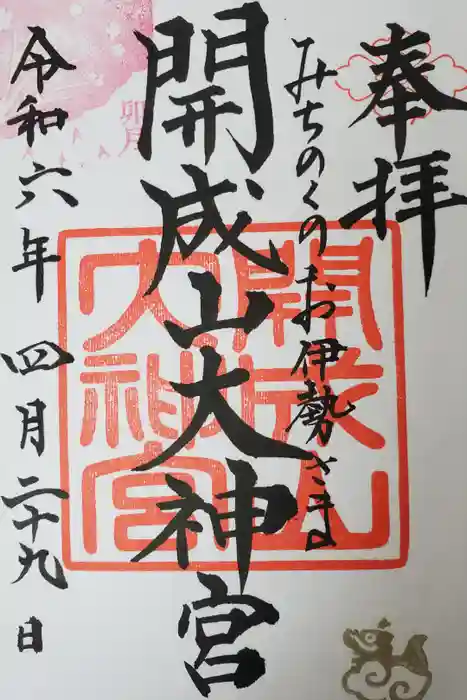 奉拝
みちのくのお伊勢さま
開成山大神宮
令和六年 四月二十九日
卯月
開成山
大神宮